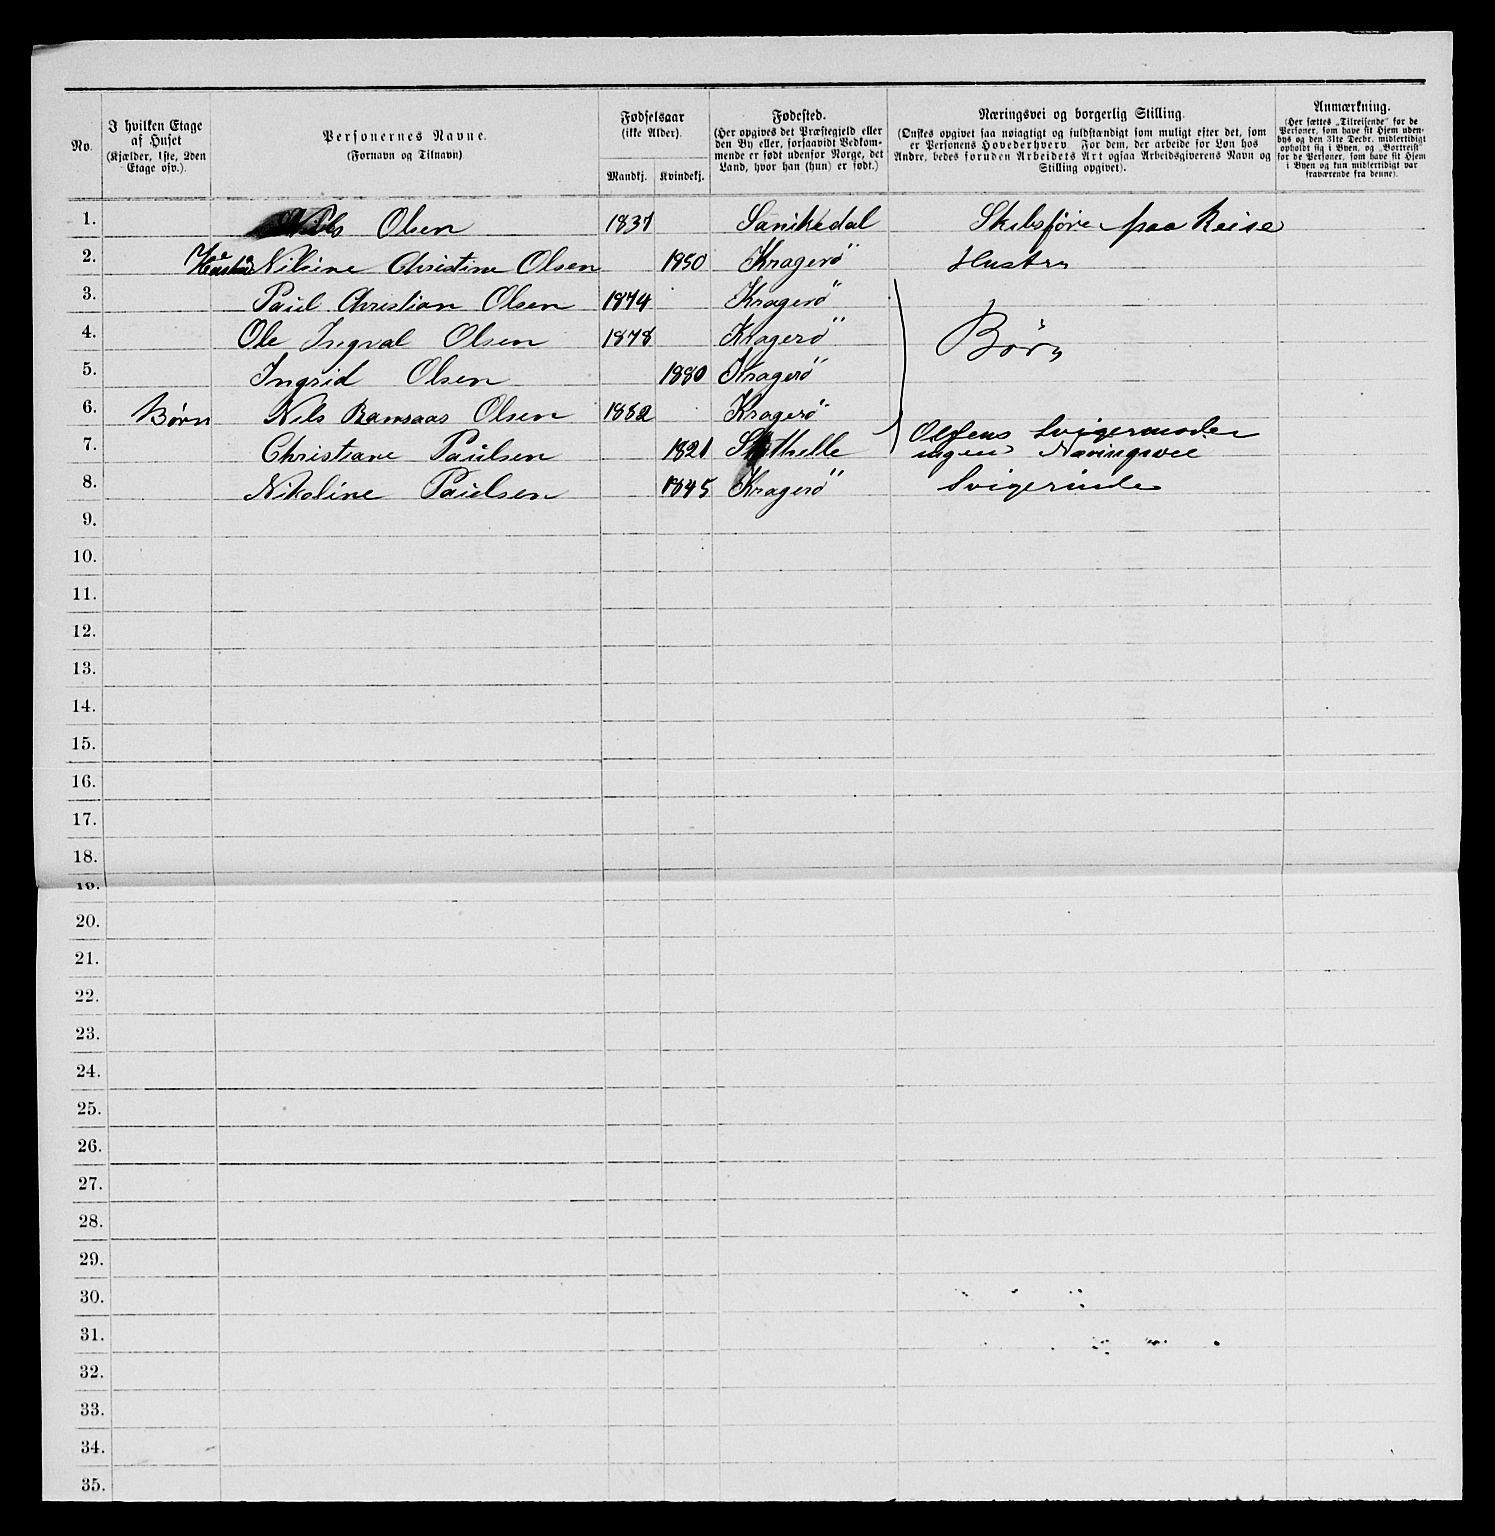 No.
I hvilken Etage
af Huset
(Kjælder, 1ste, 2den
Etage osv.)
Personernes Navne.
(Fornavn og Tilnavn)
Fødselsaar
(ikke Alder).
Mandkj. Kvindekj.
Fødested.
(Her opgives det Præstegjeld eller
den By eller, forsaavidt Vedkom-
mende er født udenfor Norge, det
Land, hvor han (hun) er født.)
Næringsvei og borgerlig Stilling.
(Ønskes opgivet saa nøiagtigt og fuldstændigt som muligt efter det, som
er Personens Hovederhverv For dem, der arbeide for Løn hos
Andre, bedes foruden Arbeidets Art ogsaa Arbeidsgiverens Navn og
Stilling opgivet).
Anmærkning.
(Her sættes „Tilreisende" for de
Personer, som have sit Hjem uden-
bys og den 31te Decbr. midlertidigt
opholdt sig i Byen, og „Bortreist"
for de Personer, som have sit Hjem
i Byen og kun midlertidigt var
fraværende fra denne).
1. Nils Olsen 1831 Sanikedal Skibsfører paa Reise
2. Hustru Nilsine Christine Olsen 1850 Kragerö Hustru
3. Paul Christian Olsen 1874 Kragerö
4. Ole Ingval Olsen 1878 Kragerö Børn
5. Ingrid Olsen 1880 Kragerö
6. Børn Nils Bamsaas Olsen 1882 Kragerö
7. Christiane Paulsen 1821 Stathelle Olsens Svigermoder
ingen Næringsvei
8. Nikoline Paulsen 1845 Kragerö Svigerinde
9.
10.
11.
12.
13.
14.
15.
16.
17.
18.
19.
20.
21.
22.
23.
24.
25.
26.
27.
28.
29.
30.
31.
32.
33.
34.
35.